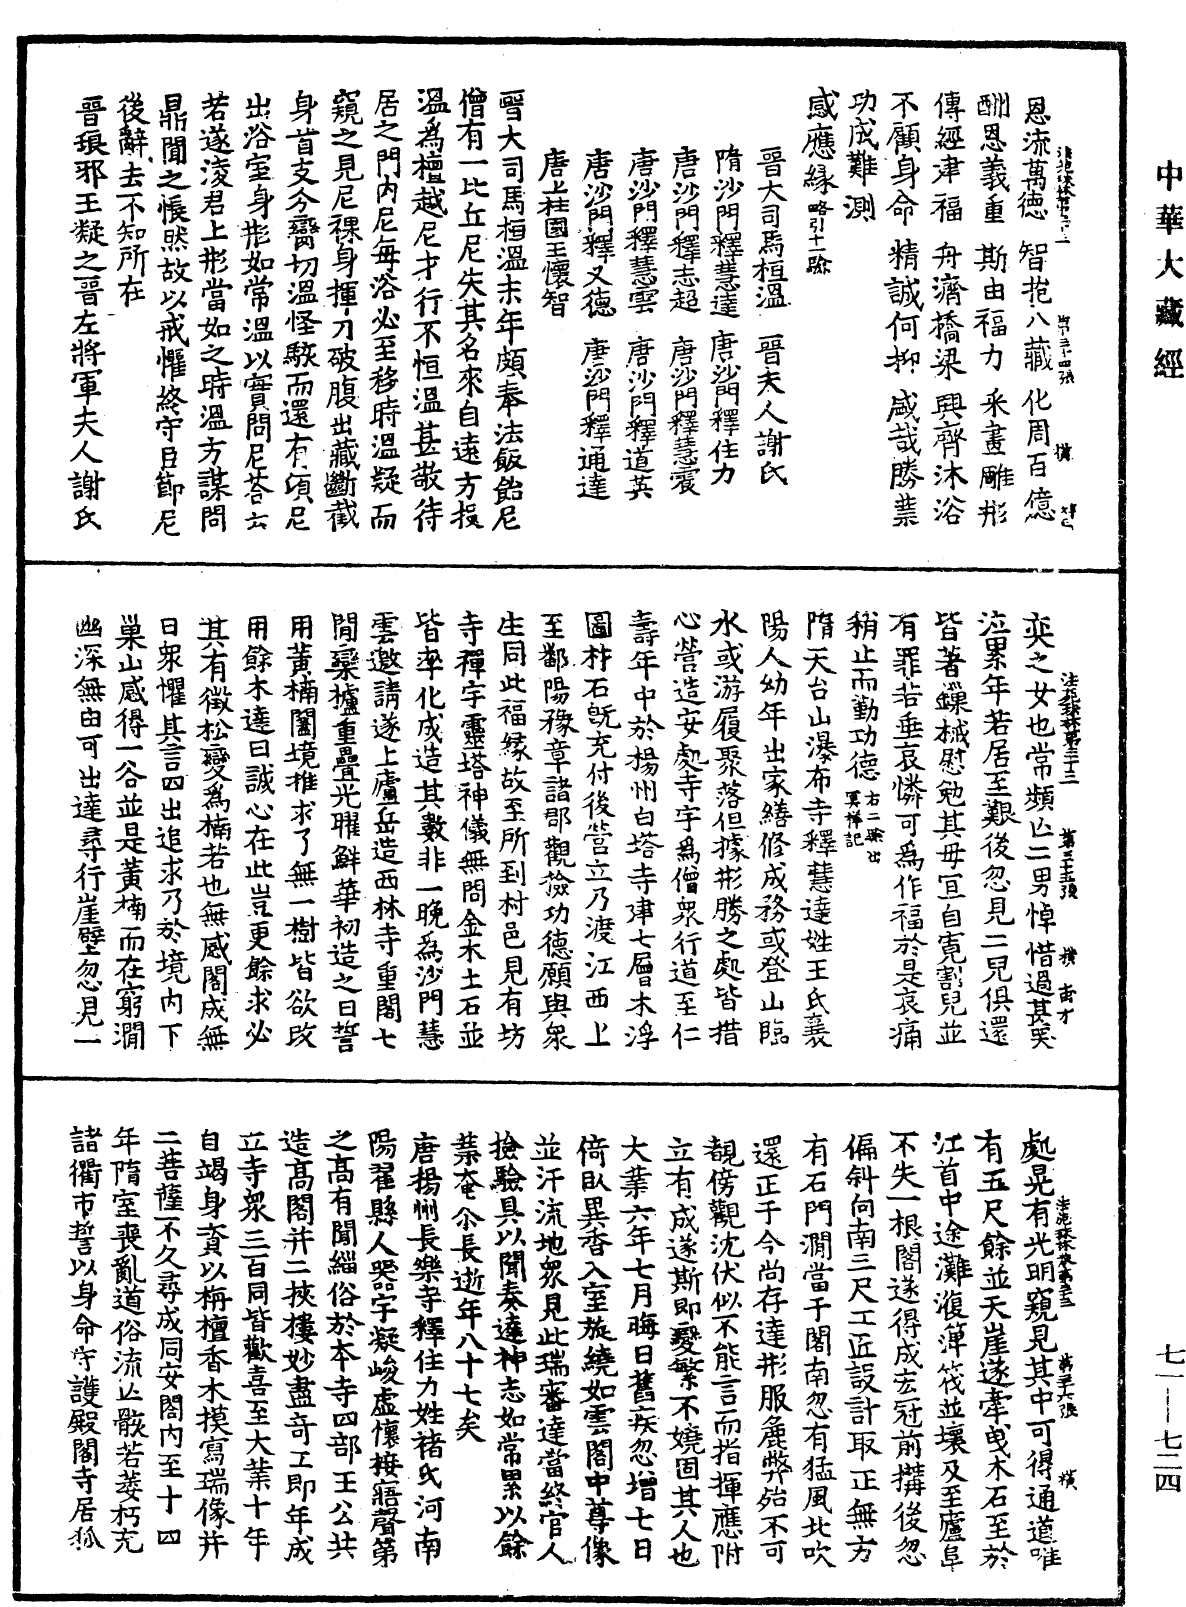 中華大藏經
恩流萬德　智抱八藏　化周百億
酬恩義重　斯由福力　釆畫雕形
傳經建福　舟濟橋梁　興齊沐浴
不顧身命　精誠何抑　咸哉勝業
功成難測
感應緣　略引十一驗
晉大司馬桓溫　晉夫人謝氏
隋沙門釋慧達　唐沙門釋住力
唐沙門釋志超　唐沙門釋慧震
唐沙門釋慧雲　唐沙門釋道英
唐沙門釋叉德　唐沙門釋通達
唐上柱國王懷智
晉大司馬桓溫末年頗奉法飯飴尼
僧有一比丘尼失其名來自遠方投
溫爲檀越尼才行不恒溫甚敬待
居之門內尼每浴必至移時溫疑而
窺之見尼裸身揮刀破腹出藏斷截
身首支分臠切溫怪駭而還有頃尼
出浴室身形如常溫以實問尼荅云
若遂淩君上形當如之時溫方謀問
鼎聞之悵然故以戒懼終守臣節尼
後辭去不知所在
晉琅邪王凝之晉左將軍夫人謝氏
法苑珠林第三十三　第三十五張　橫
奕之女也常頻亡二男悼惜過甚哭
泣累年若居至艱後忽見二兒俱還
皆著鏁械慰勉其母宜自寬割兒並
有罪若垂哀憐可爲作福於是哀痛
稍止而勤功德　右二驗出冥祥記
隋天台山瀑布寺釋慧達姓王氏襄
陽人幼年出家繕修成務或登山臨
水或游履聚落但據形勝之處皆措
心營造安處寺宇爲僧衆行道至仁
壽年中於楊州白塔寺建七層木浮
圖材石旣充付後營立乃渡江西上
至鄱陽豫章諸郡觀撿功德願與衆
生同此福緣故至所到村邑見有坊
寺禪宇靈塔神儀無問金木土石並
皆率化成造其數非一晚爲沙門慧
雲邀請遂上廬岳造西林寺重閣七
間欒櫨重疊光曜鮮華初造之日誓
用黃楠闔境推求了無一樹皆欲改
用餘木達曰誠心在此豈更餘求必
其有徵松變爲楠若也無感閣成無
日衆懼其言四出追求乃於境內下
巢山感得一谷並是黃楠而在窮澗
幽深無由可出達尋行崖壁忽見一
處晃有光明窺見其中可得通道唯
有五尺餘並天崖遂牽曳木石至於
江首中途灘澓簰筏並壞及至廬阜
不失一根閣遂得成宏冠前搆後忽
偏斜向南三尺工匠設計取正無方
有石門澗當于閣南忽有猛風北吹
還正于今尚存達形服麁弊殆不可
覩傍觀沈伏似不能言而指揮應附
立有成遂斯即變繁不嬈固其人也
大業六年七月晦日舊疾忽增七日
倚臥異香入室旋繞如雲閣中尊像
並汗流地衆見此瑞審達當終官人
撿驗具以聞奏達神志如常累以餘
業奄尒長逝年八十七矣
唐揚州長樂寺釋住力姓褚氏河南
陽翟縣人器宇凝峻虛懷接寤聲第
之高有聞緇俗於本寺四部王公共
造高閣并二挾樓妙盡奇工即年成
立寺衆三百同皆歡喜至大業十年
自竭身資以栴檀香木摸寫瑞像并
二菩薩不久尋成同安閣內至十四
年隋室喪亂道俗流亡骸若萎朽充
諸衢市誓以身命守護殿閣寺居狐
七一—七二四